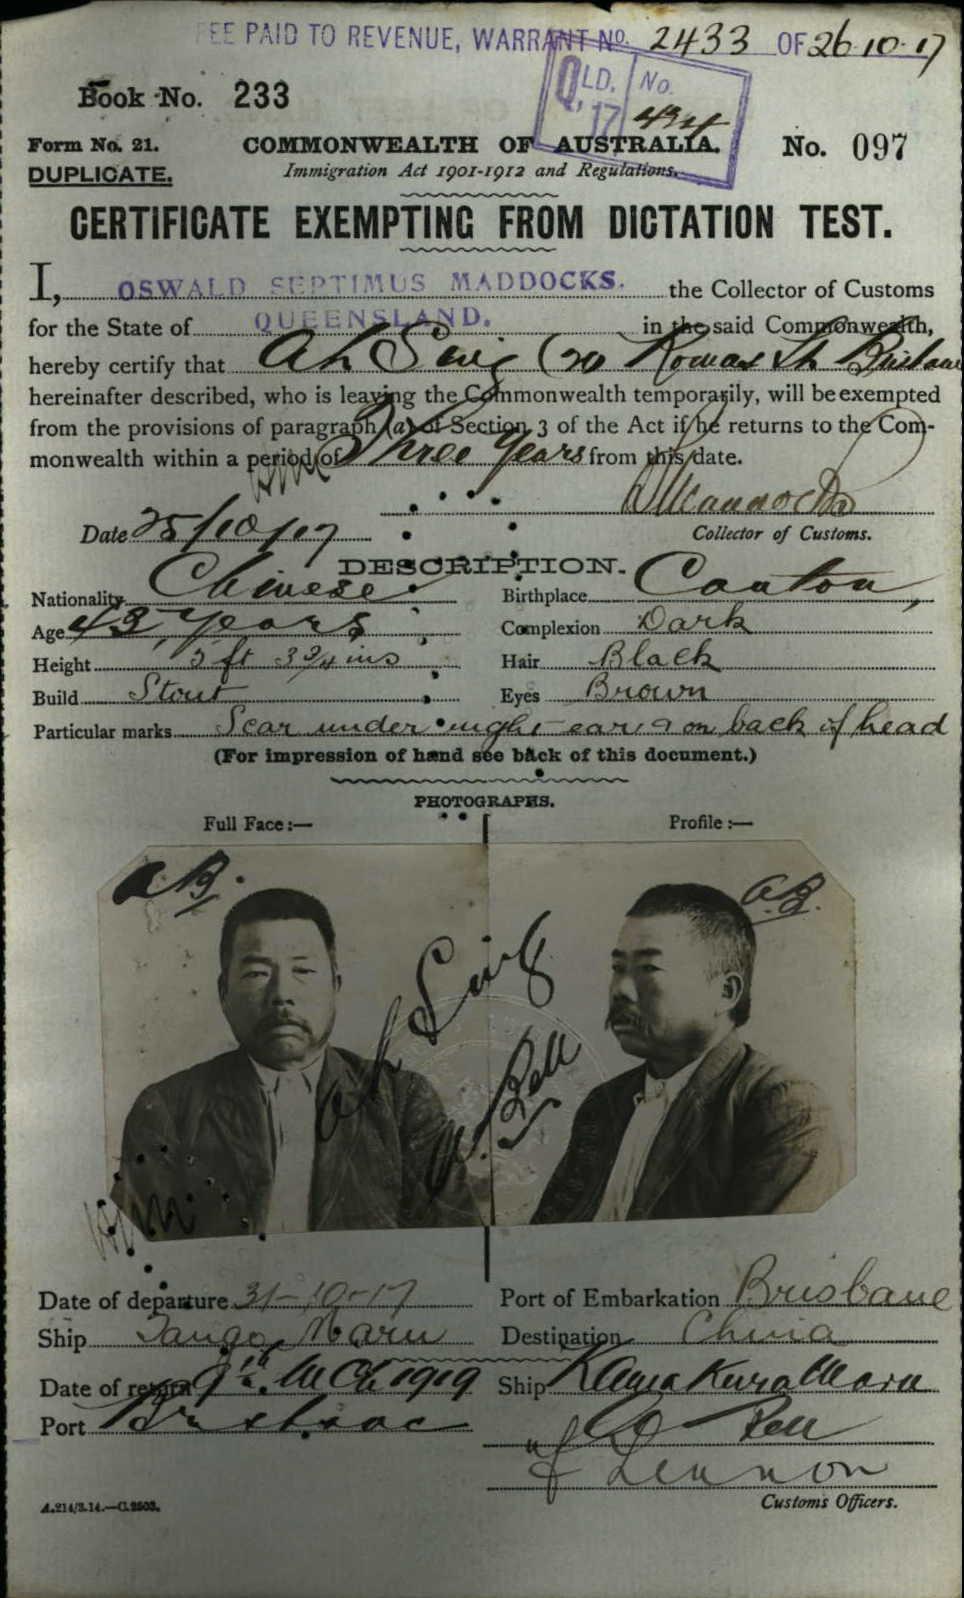 FEE PAID TO REVENUE, WARRANT No. 2433 OF 26.10.17
QLD. No.
17 434
Book No. 233
Form No. 21. COMMONWEALTH OF AUSTRALIA. No. 097
DUPLICATE. Immigration Act 1901-1912 and Regulations.
CERTIFICATE EXEMPTING FROM DICTATION TEST.
I, OSWALD SEPTIMUS MADDOCKS. the Collector of Customs
for the State of QUEENSLAND. in the said Commonwealth,
hereby certify that Ah Sing (20 Roma St Brisbane
hereinafter described, who is leaving the Commonwealth temporarily, will be exempted
from the provisions of paragraph (a) of Section 3 of the Act if he returns to the Com-
monwealth within a period of Three Years from this date.
Date 25/10/17 Collector of Customs.
DESCRIPTION.
Nationality Chinese Birthplace Canton,
Age 43 years Complexion Dark
Height 5 ft 3 3/4 ins Hair Black
Build Stout Eyes Brown
Particular marks Scar under right ear & on back of head
(For impression of hand see back of this document.)
PHOTOGRAPHS.
Full Face:— Profile:—
A.B. A.B.
Ah Sing
A. Bell
Date of departure 31-10-17 Port of Embarkation Brisbane
Ship Tango Maru Destination China
Date of return 9th Mch 1919 Ship Kamakura Maru
Port Brisbane Bell
Lennon
A.214/3.14.—C.2503. Customs Officers.